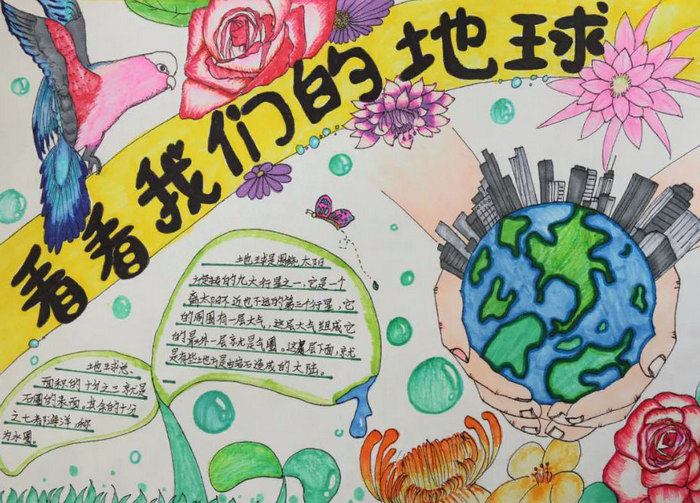 看看我们的地球
地球是围绕太阳
旋转的九大行星之一,它是一个
离太阳不近也不远的第三个行星,它
的周围有一层大气,这层大气组成它
的最外一层就是气圈。这层下面,就
是有些地方是由岩石造成的大陆。
地球总
面积的十分之三就是
石圈的表面,其余的十分
之七是海洋,称
为水圈